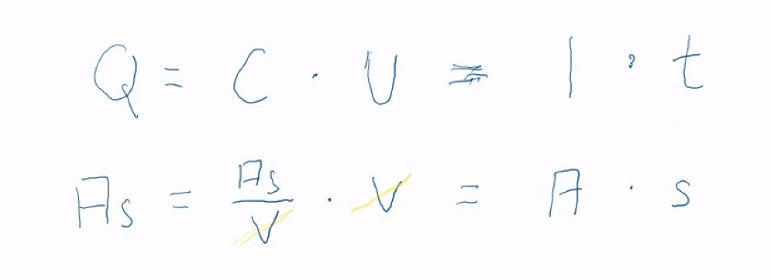 Q = C · U = I · t
As = As/V · V = A · s